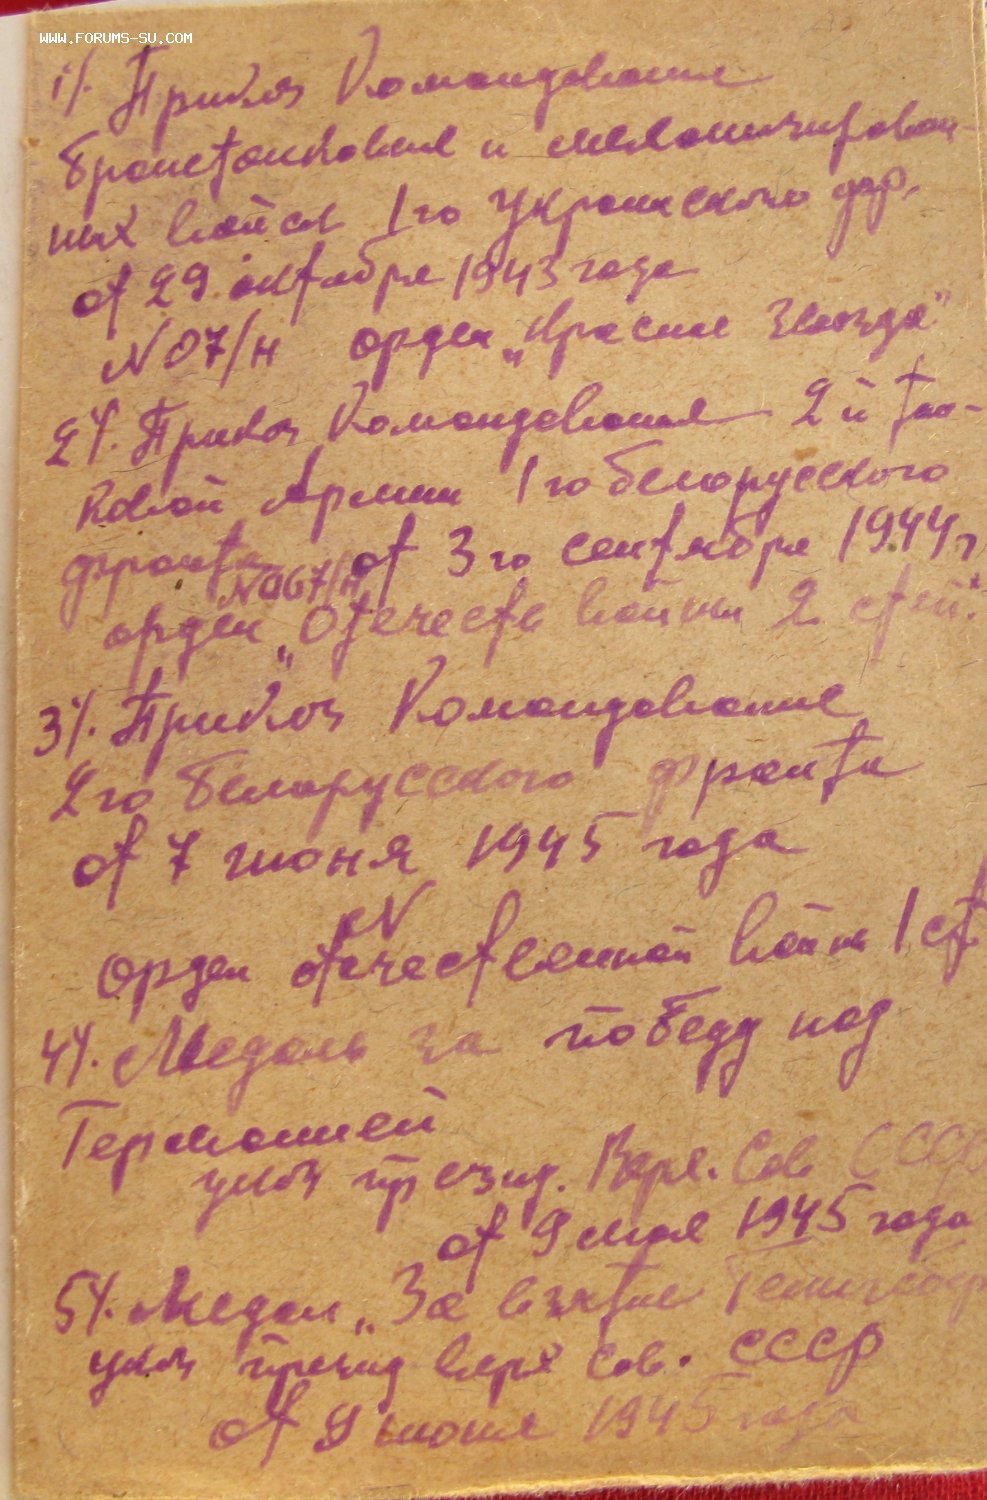 WWW.FORUMS-SU.COM
1/. Приказ Командования
бронетанковых и механизирован-
ных войск 1го Украинского фр.
от 29 октября 1943 года
N 07/н орден „Красные Звезда"
2/. Приказ Командования 2й тан-
ковой Армии 1го белорусского
фронта от 3го сентября 1944г
N 067/н
орден „Отечеств войны 2 степ."
3/. Приказ Командования
2го белорусского фронта
от 7 июня 1945 года
N
Орден отечественной войны 1 ст
4/. Медаль за победу над
Германией
указ презид. Верх. Сов СССР
от 9 мая 1945 года
5/. Медаль „За взятие
указ презид верх Сов. СССР
от 9 июня 1945 года